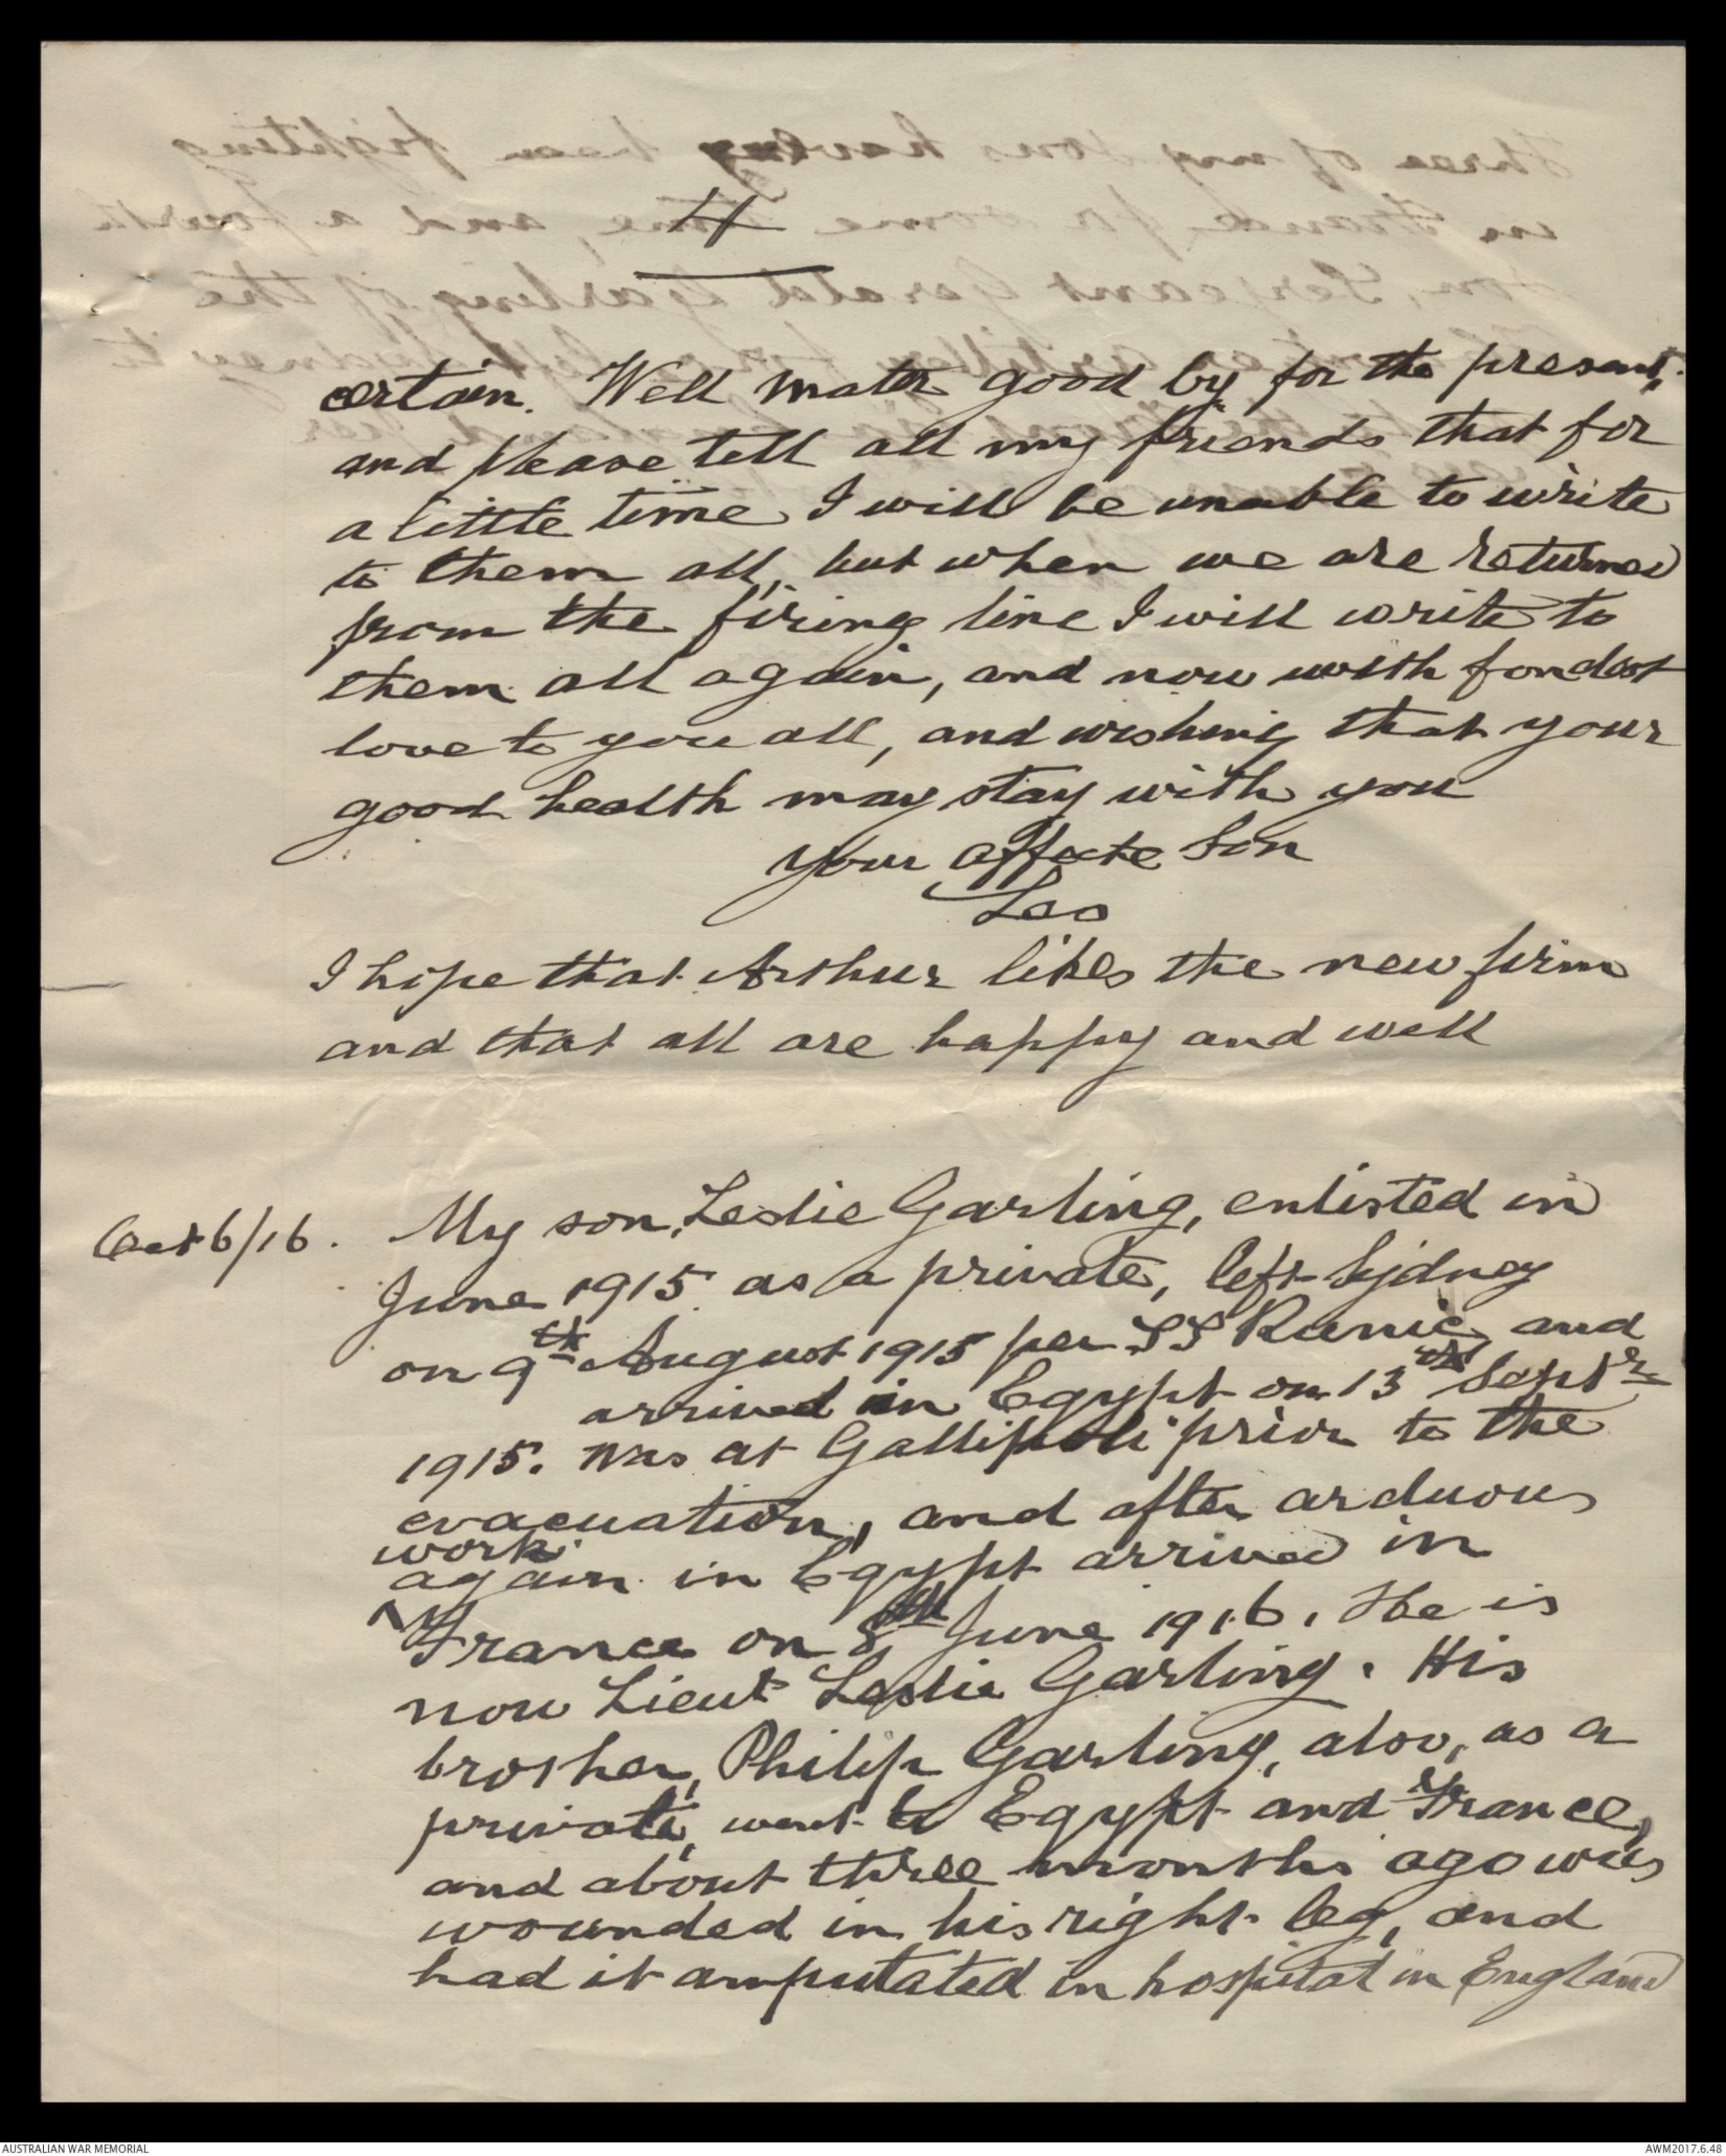 4
certain. Well mater good by for the present,
and please tell all my friends that for
a little time I will be unable to write
to them all, but when we are returned
from the firing line I will write to
them all again, and now with fondest
love to you all, and wishing that your
good health may stay with you
your affecte Son
Les
I hope that Arthur likes the new firm
and that all are happy and well
Oct 6/16. My son, Leslie Garling, enlisted in
June 1915 as a private, left Sydney
on 9th August 1915 per SS Runic and
arrived in Egypt on 13th Septr
1915. Was at Gallipoli prior to the
evacuation, and after arduous
work
again in Egypt arrived in
France on 8th June 1916. He is
now Lieut Leslie Garling. His
brother, Philip Garling, also, as a
private, went to Egypt and France,
and about three months ago was
wounded in his right leg, and
had it amputated in hospital in England
AUSTRALIAN WAR MEMORIAL
AWM2017.6.48